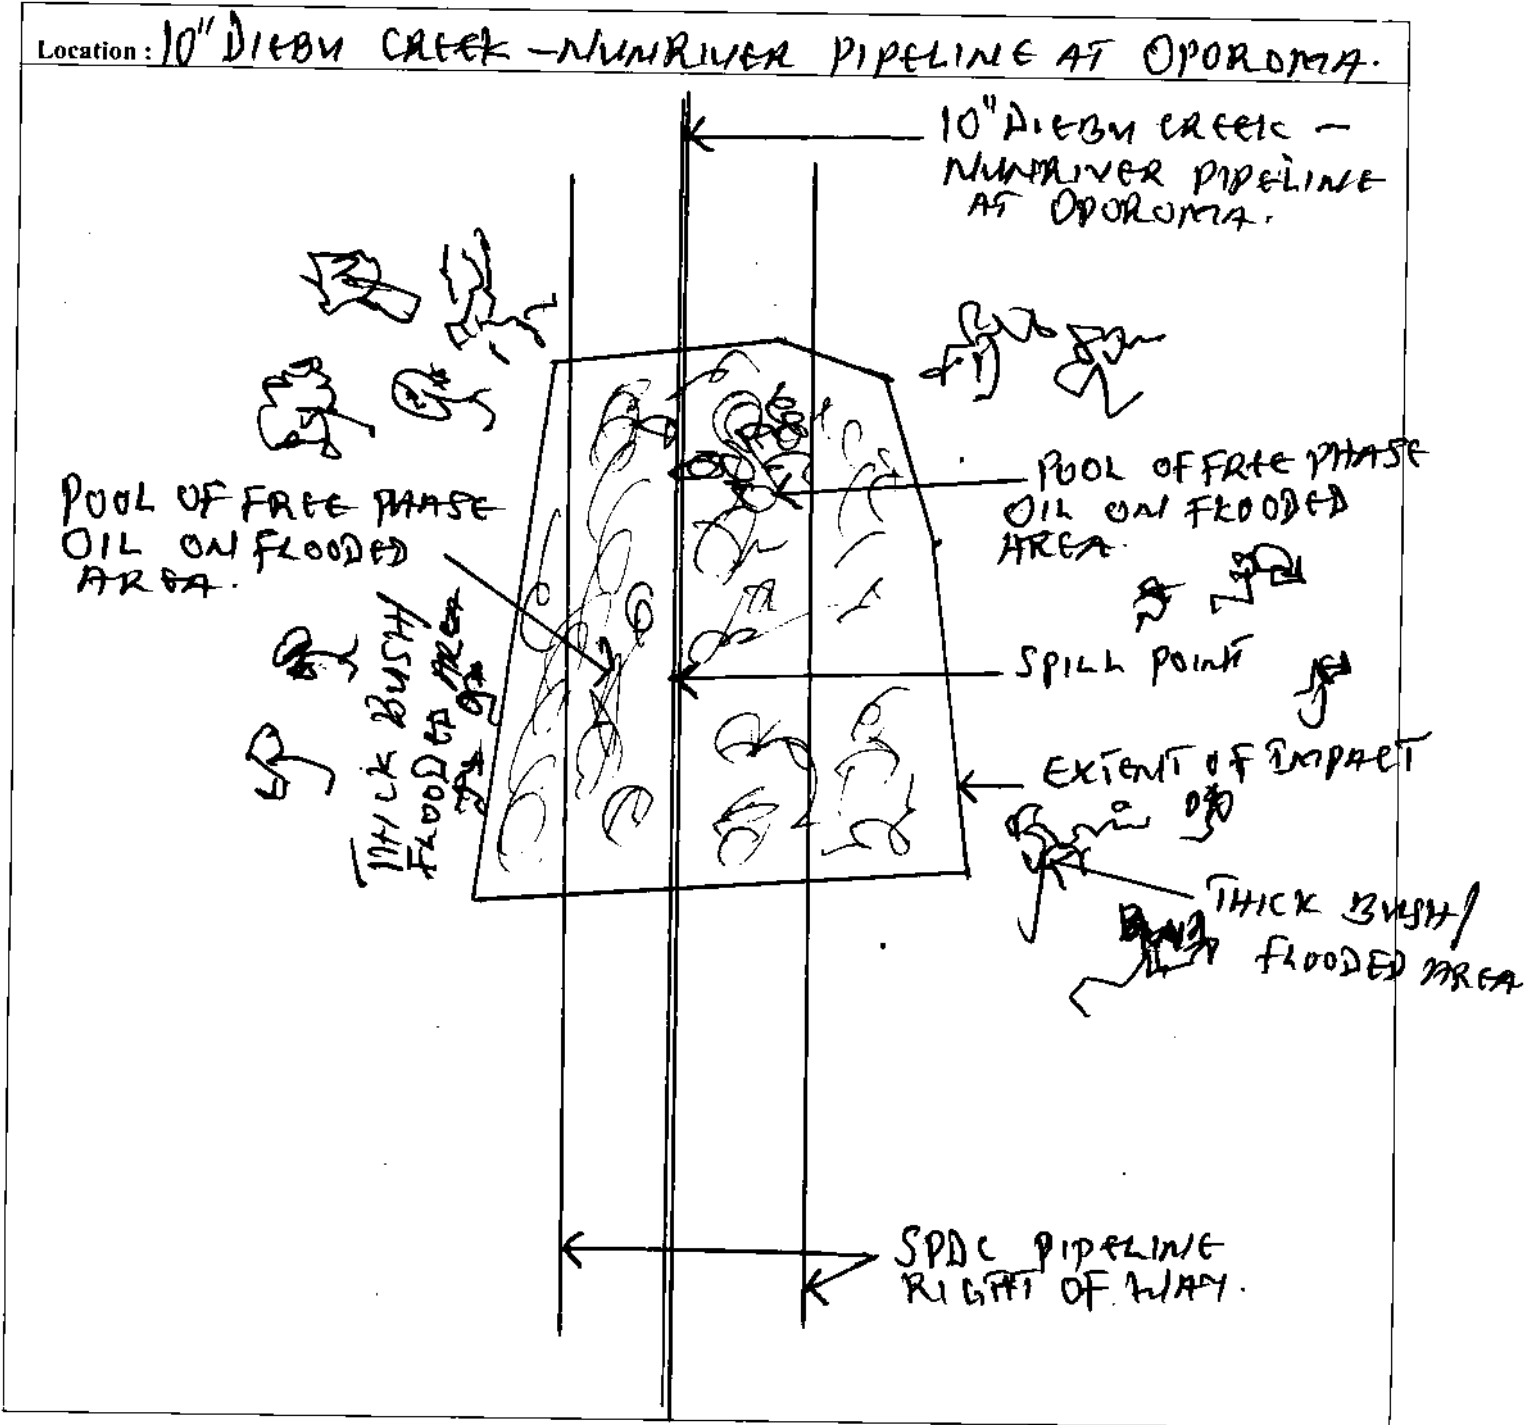 Location : 10" DIEBU CREEK - NUNRIVER PIPELINE AT OPOROMA.
10" DIEBU CREEK -
NUNRIVER PIPELINE
AT OPOROMA.
POOL OF FREE PHASE
OIL ON FLOODED
AREA.
POOL OF FREE PHASE
OIL ON FLOODED
AREA.
THICK BUSH/
FLOODED AREA
SPILL POINT
EXTENT OF IMPACT
THICK BUSH/
FLOODED AREA
SPDC PIPELINE
RIGHT OF WAY.